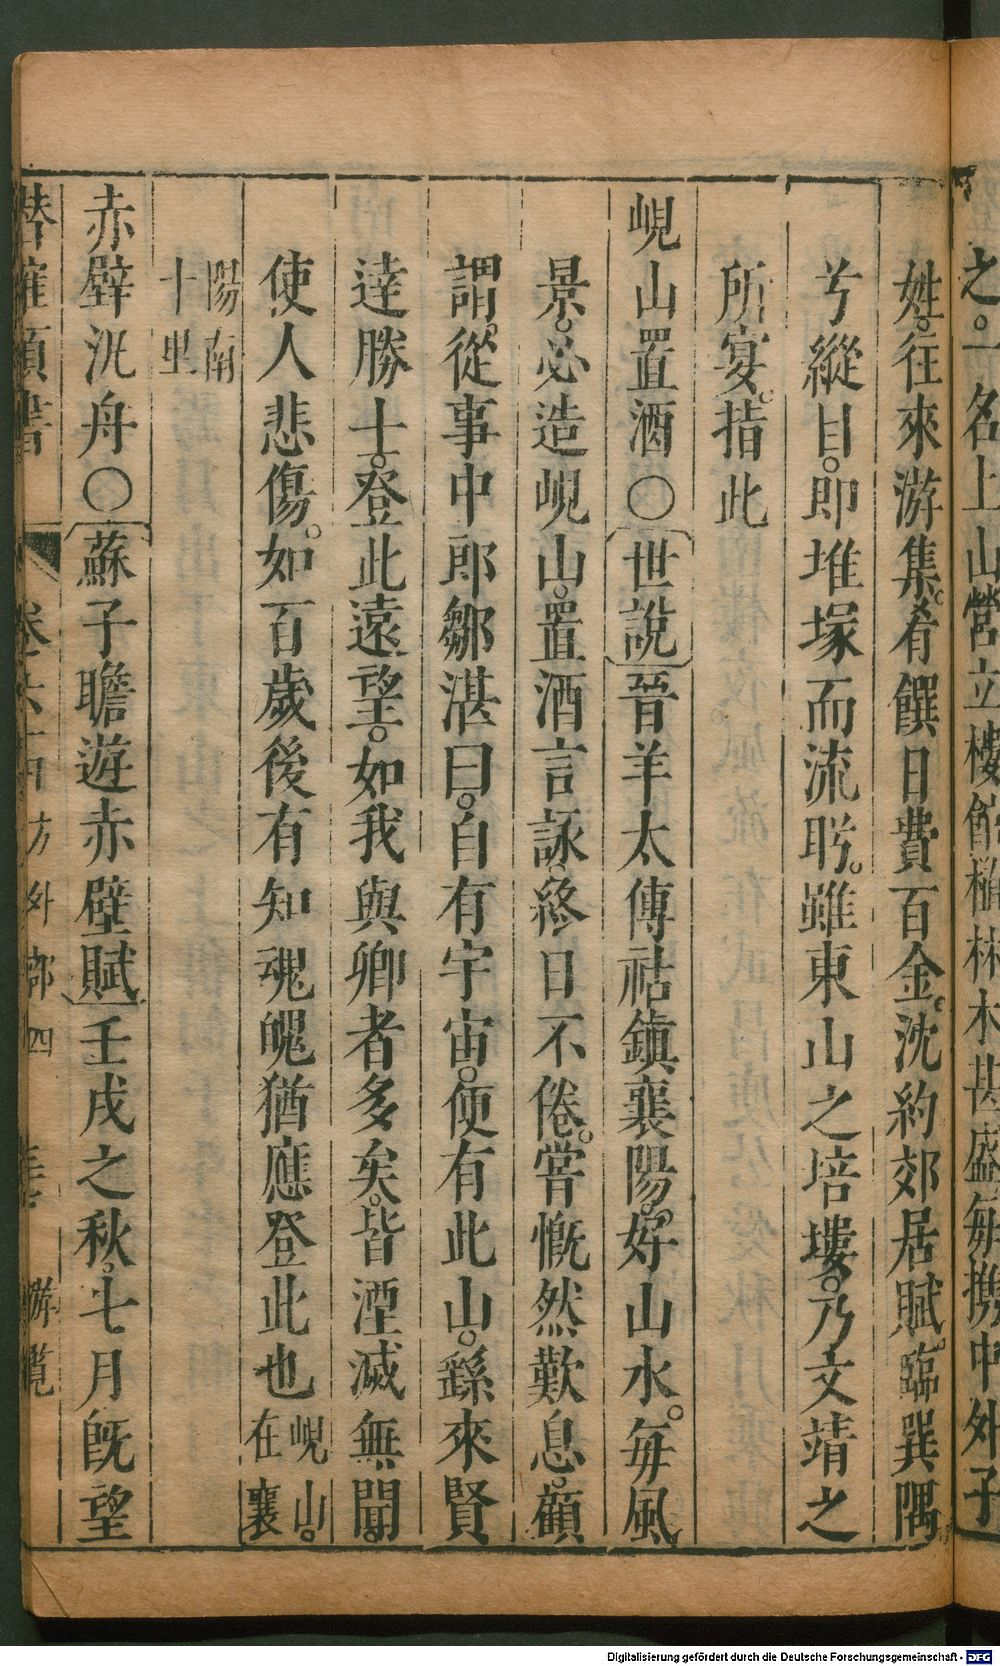 之。一名上山營立樓館植林木甚盛每携中外子
姓。往來游集。肴饌日費百金。沈約郊居賦。臨巽隅
兮縱目。即堆塚而流眄。雖東山之培塿。乃文靖之
所宴。指此
峴山置酒〇世說晉羊太傅祜鎮襄陽。好山水。每風
景。必造峴山。置酒言詠。終日不倦。嘗慨然歎息。顧
謂。從事中郎鄒湛曰。自有宇宙。便有此山。繇來賢
達勝士。登此遠望。如我與卿者多矣。皆湮滅無聞。
使人悲傷。如百歲後有知魂魄猶應登此也峴山。在襄
陽南十里
赤壁汎舟〇蘇子瞻遊赤壁賦壬戌之秋。七月既望
卷六十四方外部四 遊覽
Digitalisierung gefördert durch die Deutsche Forschungsgemeinschaft - DFG